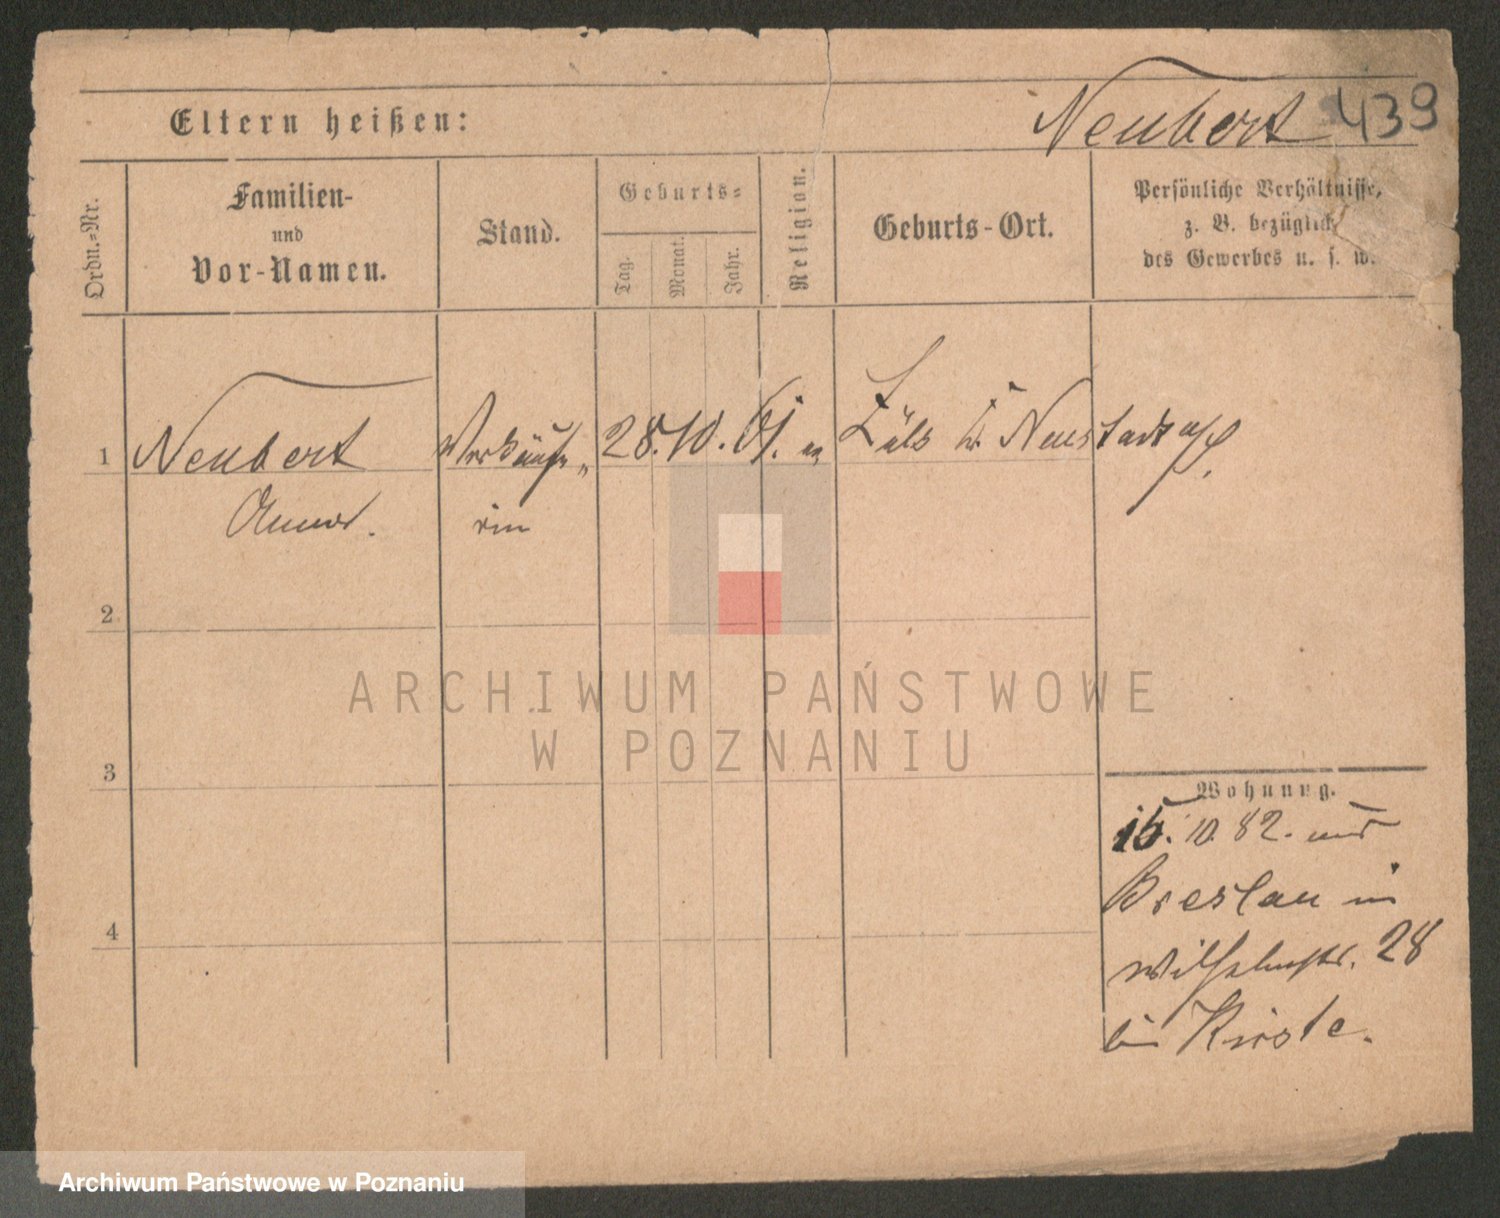 Neubert 439
Eltern heißen:
Ordn.-Nr.
Familien-
und
Vor-Namen.
Stand.
Geburts-
Tag.
Monat.
Jahr.
Religion.
Geburts-Ort.
Persönliche Verhältnisse,
z. B. bezüglich
des Gewerbes u. s. w.
1 Neubert Verkäufe- 28. 10. 61. Zülz Neustadt o/S.
Anna. rin
2
3
4
Wohnung.
15. 10. 82. aus
Breslau in
Wilhelmstr. 28
bei Kirste.
ARCHIWUM PAŃSTWOWE
W POZNANIU
Archiwum Państwowe w Poznaniu